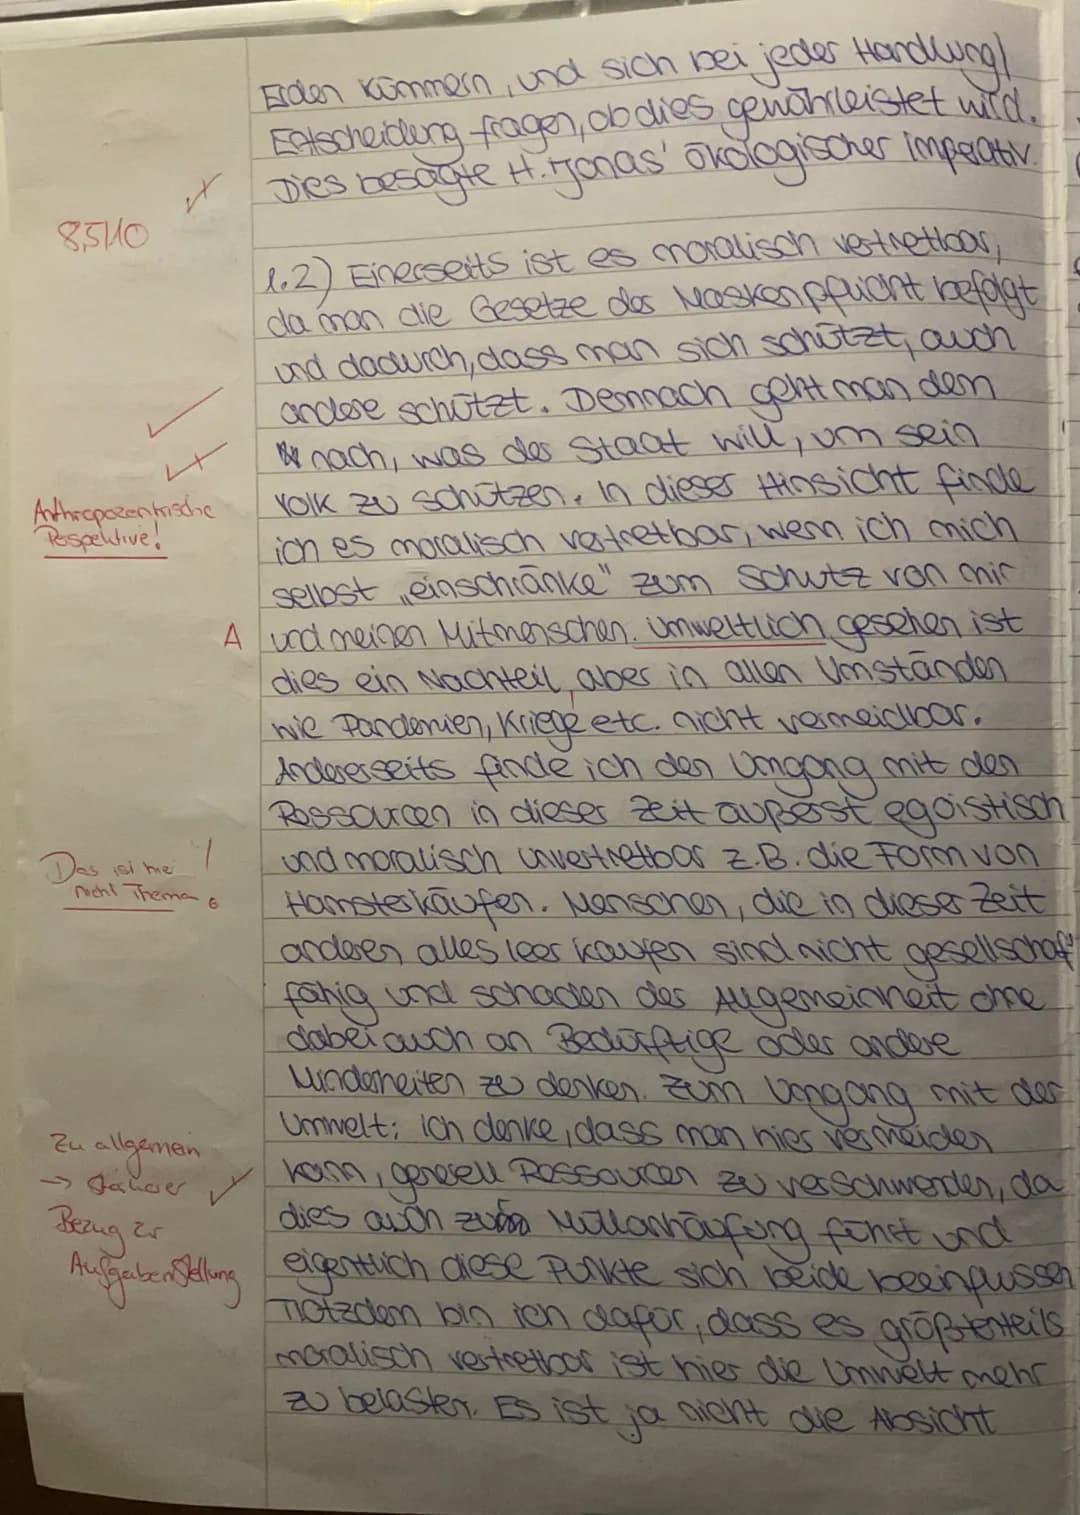 Erden kümmern, und sich bei jeder Handlung/
Entscheidung fragen, ob dies gewährleistet wird.
Dies besagte H. Jonas' ökologischer Imperativ.
8,5/10
1.2) Einerseits ist es moralisch vertretbar,
da man die Gesetze der Maskenpflicht befolgt
und dadurch, dass man sich schützt, auch
andere schützt. Dennach geht man dem
nach, was der Staat will, um sein
Volk zu schützen. In dieser Hinsicht finde
Anthropozentrische
Perspektive!
ich es moralisch vertretbar, wenn ich mich
selbst „einschränke" zum Schutz von mir
A
und meinen Mitmenschen. Umweltlich gesehen ist
dies ein Nachteil, aber in allen Umständen
wie Pandemien, Kriege etc. nicht vermeidbar.
Andererseits finde ich den Umgang mit den
Ressourcen in dieser Zeit äußerst egoistisch
und moralisch unvertretbar z.B. die Form von
Das ist hier
nicht Thema!
Hamsterkäufen. Menschen, die in dieser Zeit
anderen alles leer kaufen sind nicht gesellschaf
fähig und schaden der Allgemeinheit ohne
dabei auch an Bedürftige oder andere
Minderheiten zu denken. Zum Umgang mit der
Umwelt: Ich denke, dass man hier vermeiden
Zu allgemein
→ stärker
Bezug zr
Aufgabenstellung
kann, generell Ressourcen zu verschwenden, da
dies auch zur Müllanhäufung führt und
eigentlich diese Punkte sich beide beeinflussen
Trotzdem bin ich dafür, dass es größtenteils
moralisch vertretbar ist hier die Umwelt mehr
zu belasten. Es ist ja nicht die Absicht